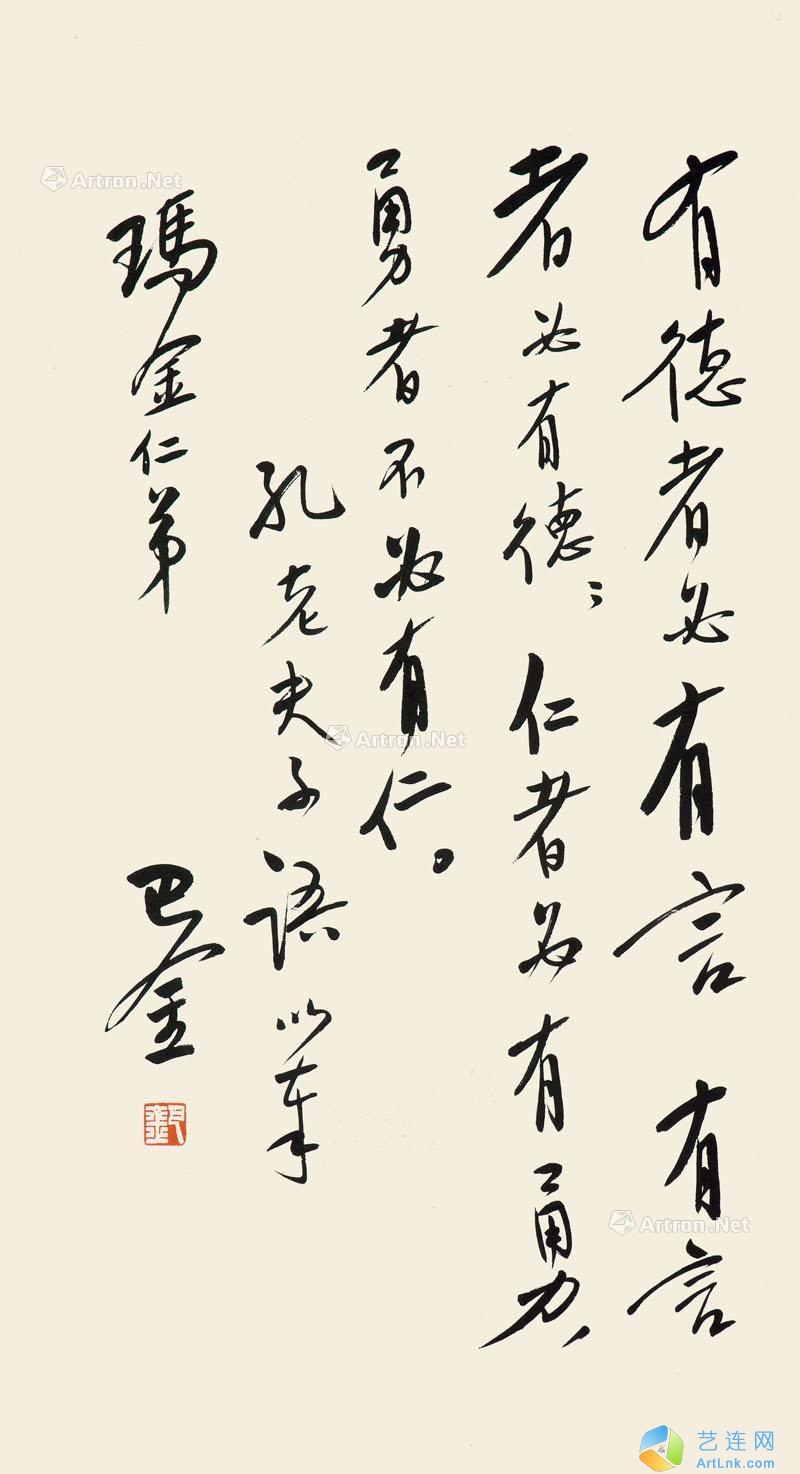 有德者必有言 有言
者必有德；仁者必有勇，
勇者不必有仁。
孔老夫子语以奉
瑪金仁弟
巴金
巴金
Artron.Net
Artron.Net
Artron.Net
艺连网
ArtLnk.com